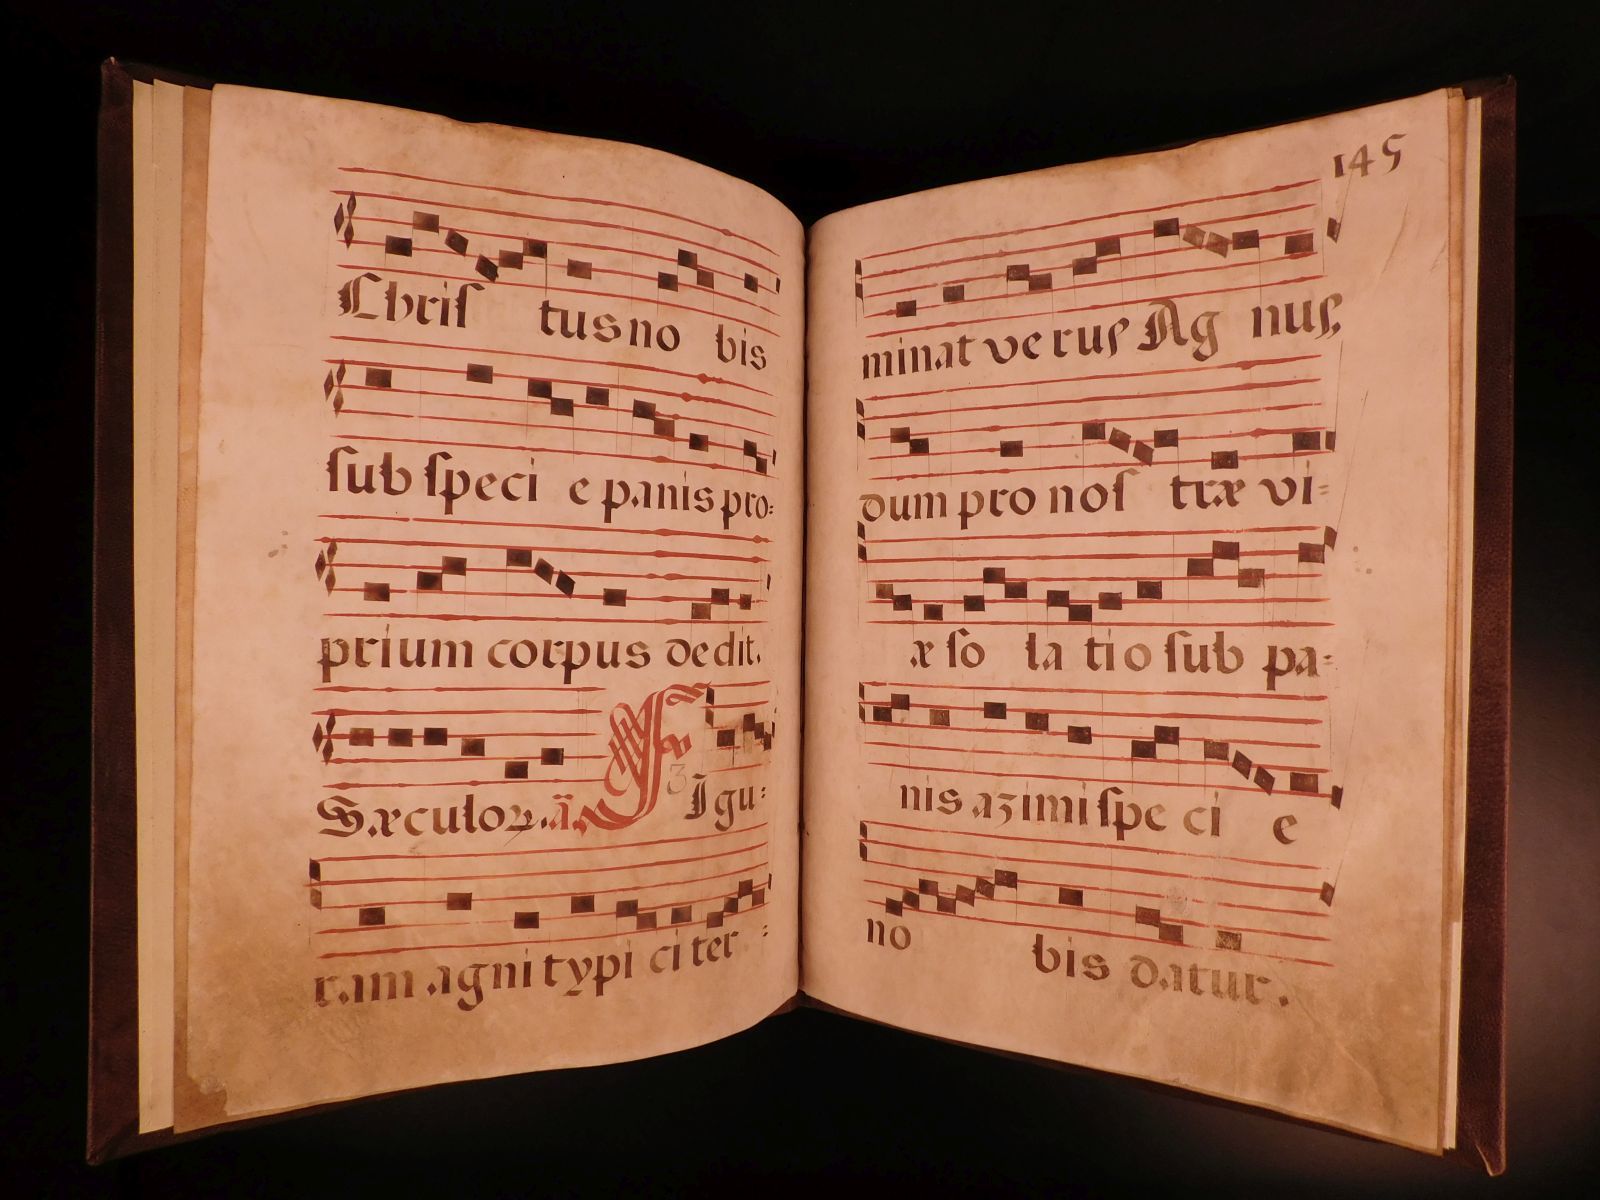 Chris tus no bis
sub speci e panis pro=
prium corpus dedit.
Sæculoꝝ. ã. 3 I gu=
ram agni typi ci ter =
145
minat verus Ag nus,
dum pro nos træ vi=
æ so la tio sub pa=
nis azimi spe ci e
no bis datur.